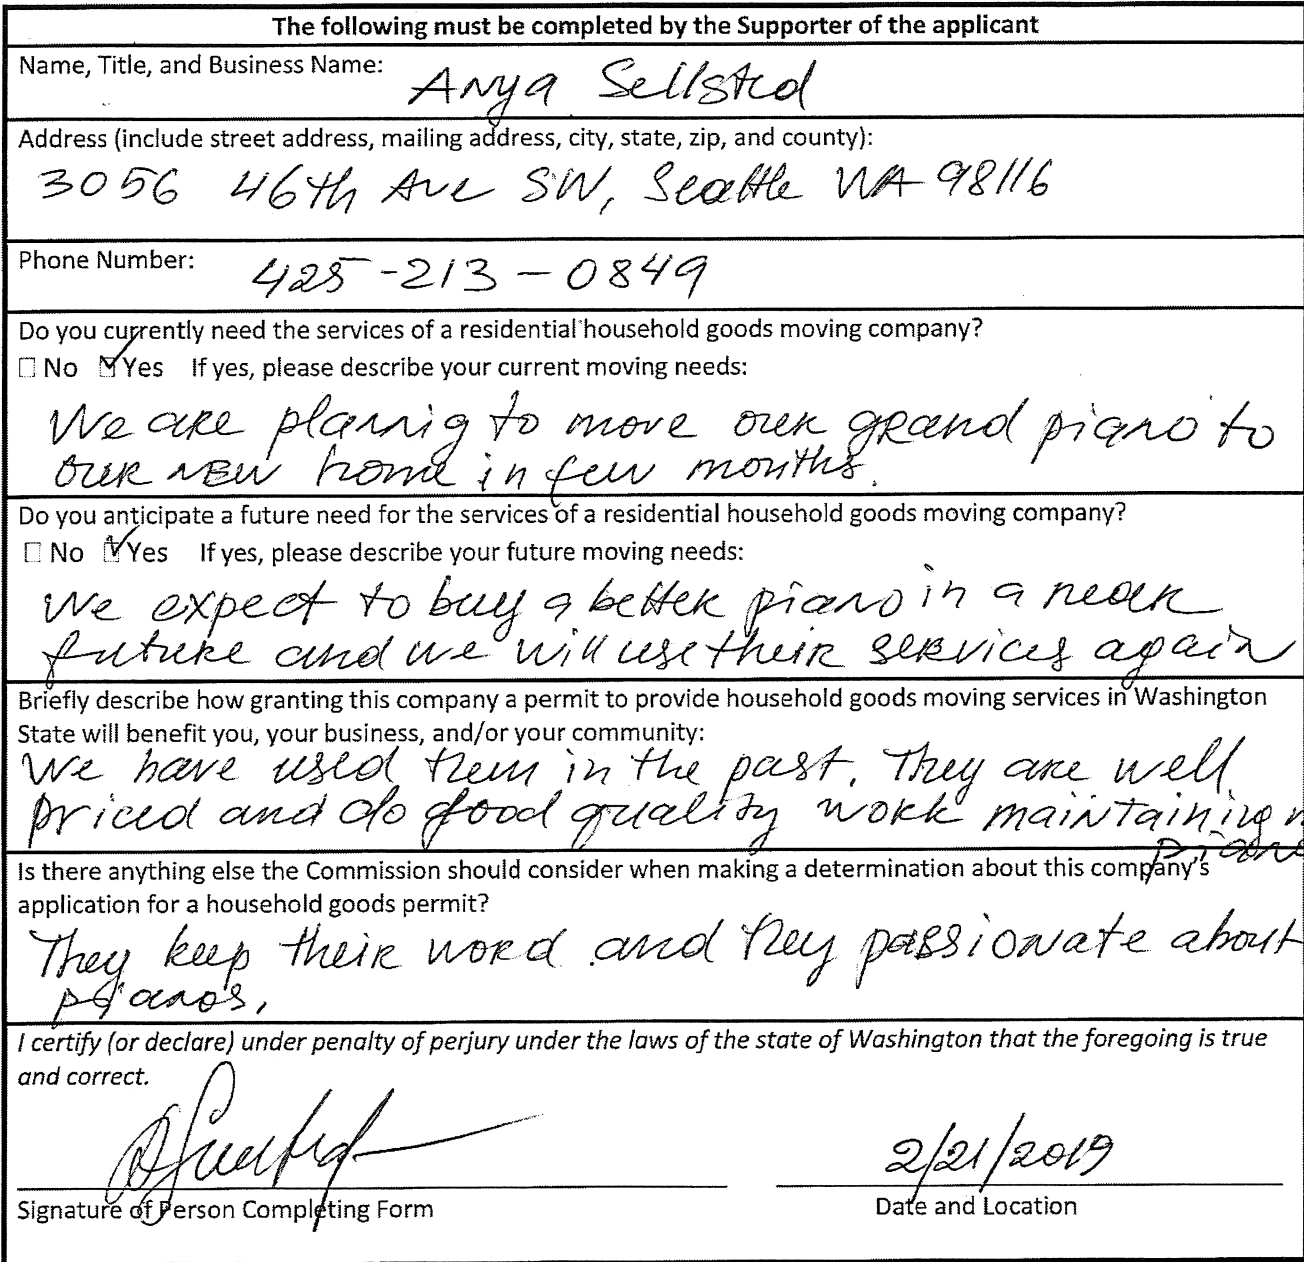 The following must be completed by the Supporter of the applicant
Name, Title, and Business Name: Anya Sellsted
Address (include street address, mailing address, city, state, zip, and county):
3056 46th Ave SW, Seattle WA 98116
Phone Number: 425-213-0849
Do you currently need the services of a residential household goods moving company?
☐ No ☑ Yes If yes, please describe your current moving needs:
We are plannig to move our grand piano to
our new home in few months.
Do you anticipate a future need for the services of a residential household goods moving company?
☐ No ☑ Yes If yes, please describe your future moving needs:
We expect to buy a better piano in a near
future and we will use their services again
Briefly describe how granting this company a permit to provide household goods moving services in Washington
State will benefit you, your business, and/or your community:
We have used them in the past. They are well
priced and do good quality work maintaining
Is there anything else the Commission should consider when making a determination about this company's
application for a household goods permit?
They keep their word and they passionate about
pianos.
I certify (or declare) under penalty of perjury under the laws of the state of Washington that the foregoing is true
and correct.
2/21/2019
Signature of Person Completing Form Date and Location